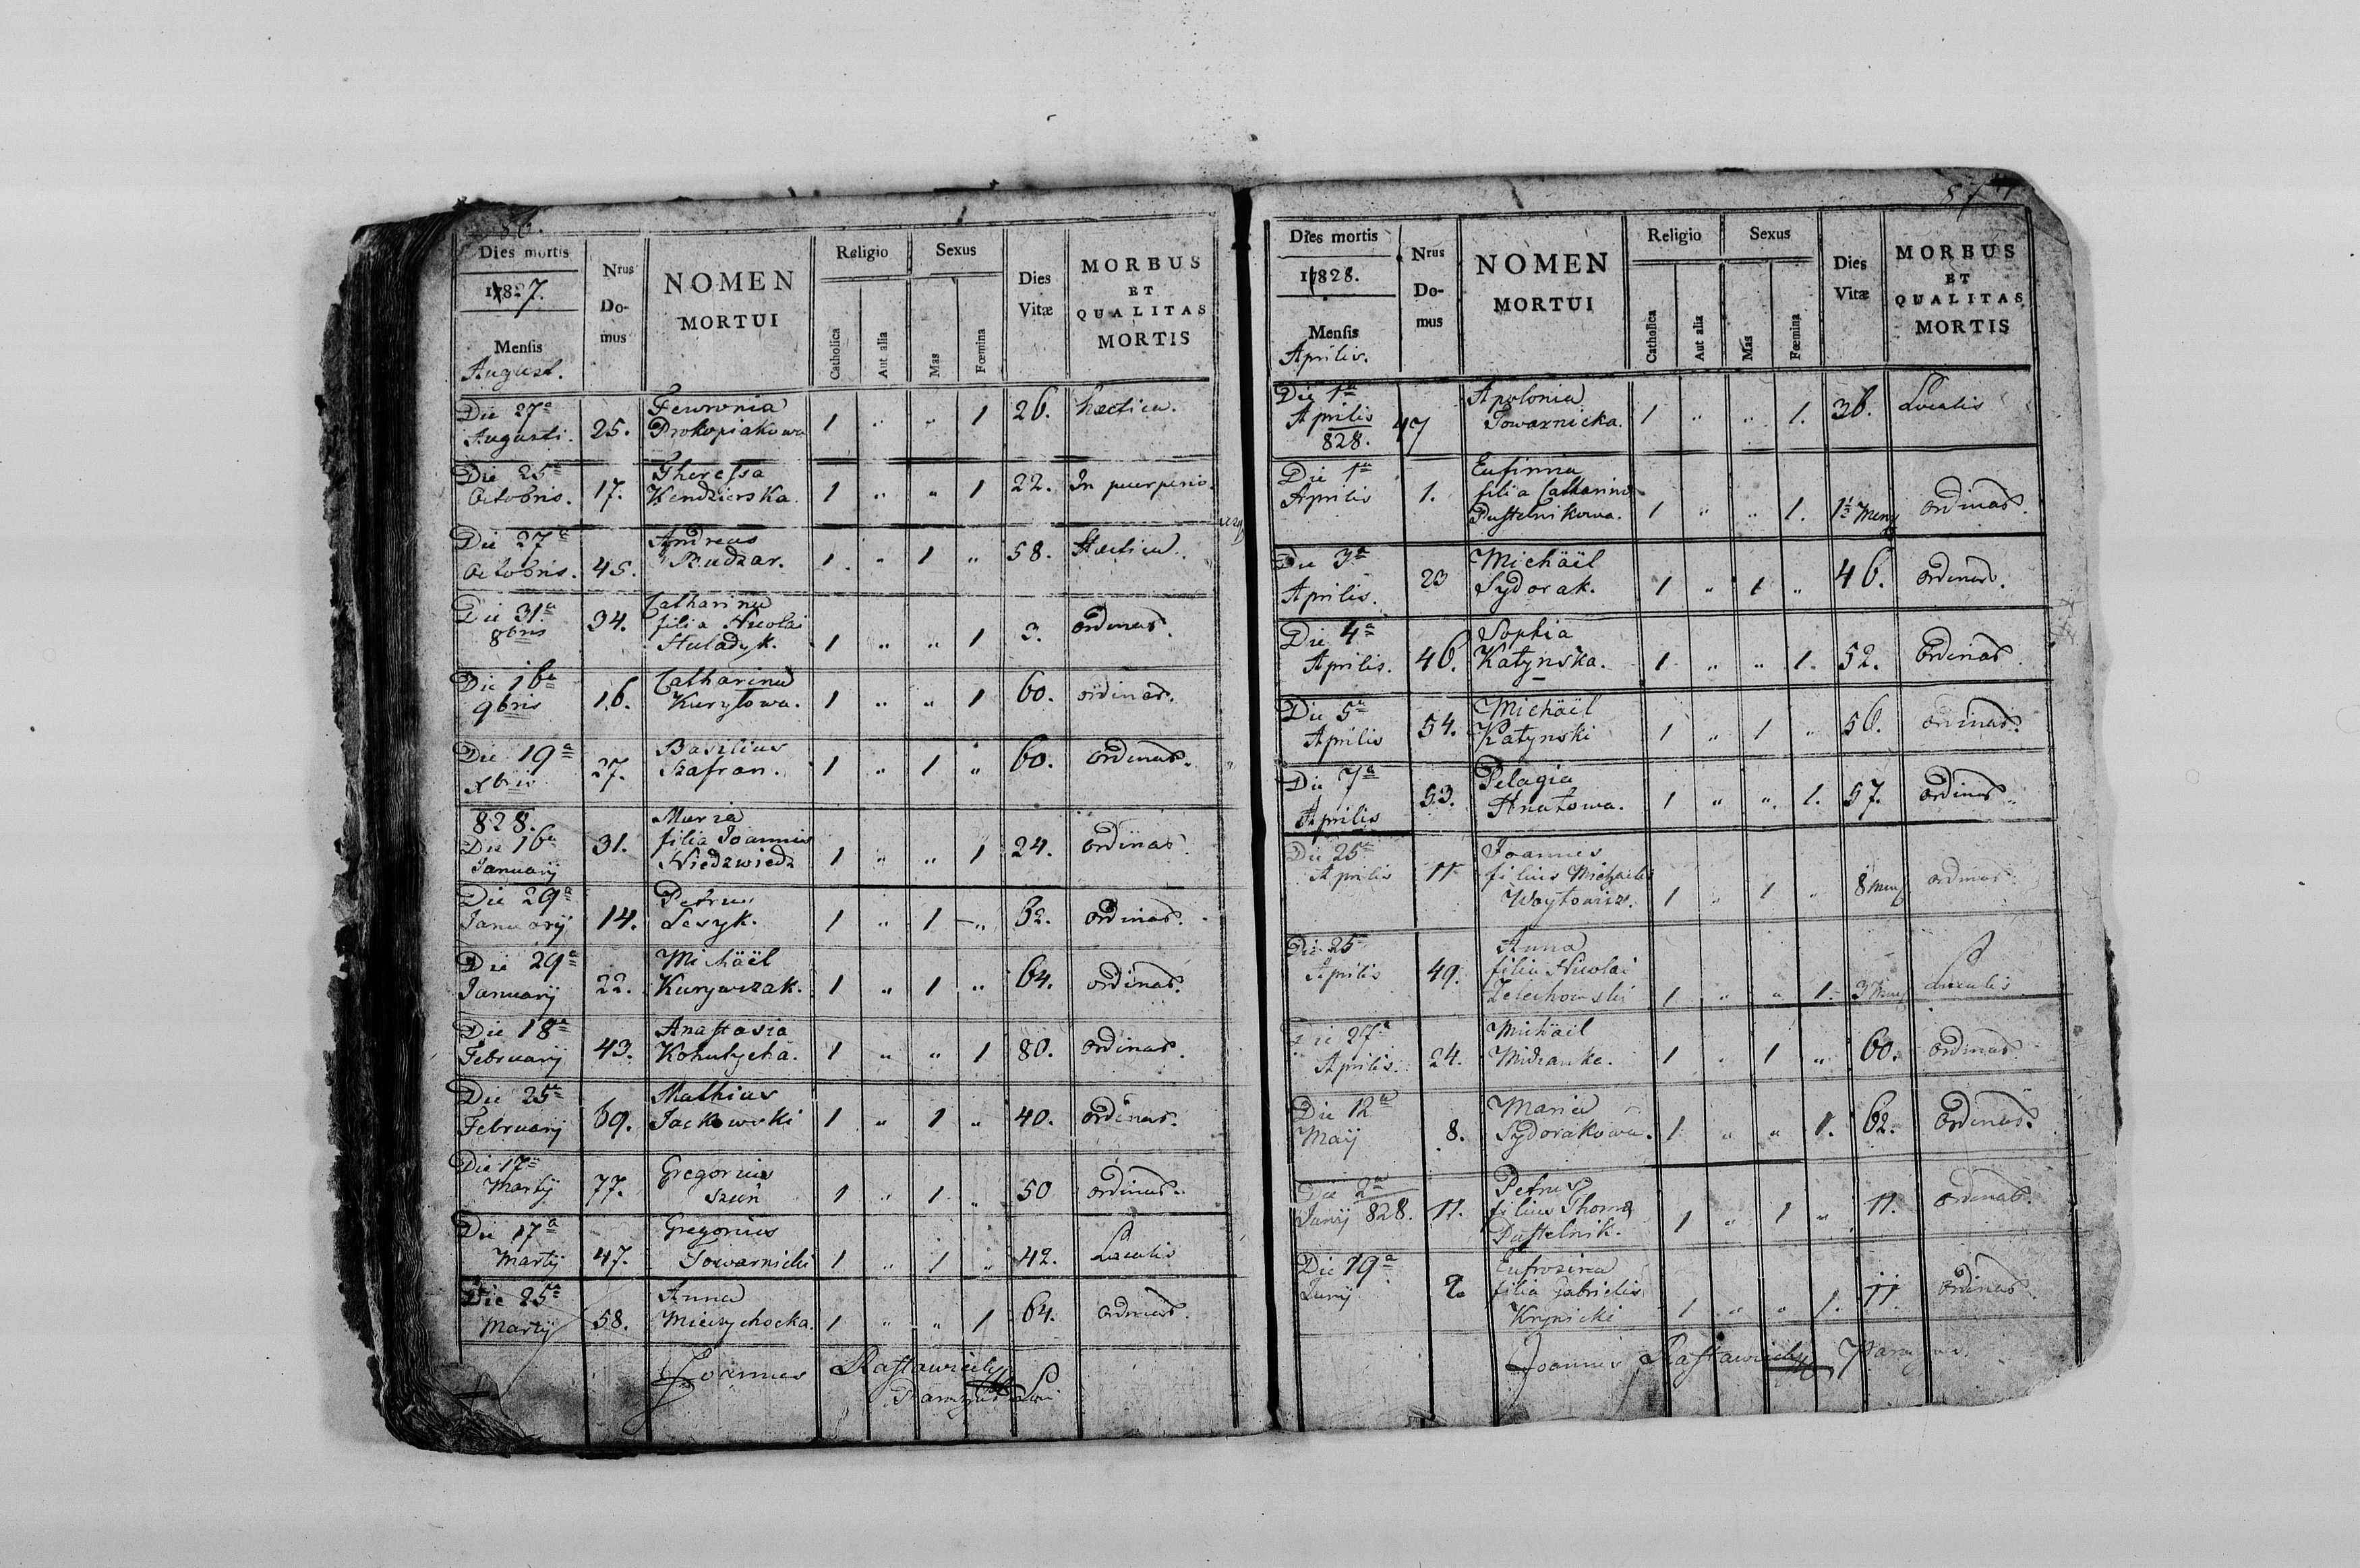 86.
Dies mortis
1827.
Mensis
August.
Nrus
Do-
mus
NOMEN
MORTUI
Religio
Catholica
Aut alia
Sexus
Mas
Fœmina
Dies
Vitæ
MORBUS
ET
QUALITAS
MORTIS
Die 27a
Augusti. 25. Fewronia
Prokopiakowa 1 " " 1 26. hectica.
Die 25a
Octobris. 17. Theressa
Kendzierska. 1 " " 1 22. In puerperio.
Die 27a
Octobris. 45. Andreas
Rudzar. 1 " 1 " 58. Hectica.
Die 31a
8bris 34. Catharina
filia Nicolai
Huladyk. 1 " " 1 3. ordinar.
Die 16a
9bris 16. Catharina
Kurylowa. 1 " " 1 60. ordinar.
Die 19a
Xbris 27. Basilius
Szafran. 1 " 1 " 60. ordinar.
828.
Die 16a
Januarij 31. Maria
filia Joannis
Niedzwiedz 1 " " 1 24. ordinar.
Die 29a
Januarij 14. Petrus
Lesyk. 1 " 1 " 62. ordinar.
Die 29a
Januarij 22. Michäel
Kurywczak. 1 " 1 " 64. ordinar.
Die 18a
Februarij 43. Anastasia
Kohutycha. 1 " " 1 80. ordinar.
Die 25a
Februarij 69. Mathias
Jackowski 1 " 1 " 40. ordinar.
Die 17a
Martij 77. Gregorius
Szuń 1 " 1 " 50 ordinar.
Die 17a
Martij 47. Gregorius
Towarnicki 1 " 1 " 42. Localis
Die 25a
Martij 58. Anna
Mierzychocka. 1 " " 1 64. ordinar.
Joannes Rastawiecky
87
Dies mortis
1828.
Mensis
Aprilis.
Nrus
Do-
mus
NOMEN
MORTUI
Religio
Catholica
Aut alia
Sexus
Mas
Fœmina
Dies
Vitæ
MORBUS
ET
QUALITAS
MORTIS
Die 1a
Aprilis
828. 47 Apolonia
Towarnicka. 1 " " 1. 36. Localis
Die 1a
Aprilis 1. Eufimia
filia Catharina
Pustelnikowa. 1 " " 1. 1½ Mens ordinar.
Die 3a
Aprilis. 23 Michäel
Sydorak. 1 " 1 " 46. ordinar.
Die 4a
Aprilis. 46. Sophia
Katynska. 1 " " 1. 52. ordinar.
Die 5a
Aprilis 54. Michäel
Katynski 1 " 1 " 56. ordinar.
Die 7a
Aprilis 53. Pelagia
Hnatowa. 1 " " 1. 57. ordinar.
Die 25a
Aprilis 11 Joannes
filius Michaelis
Woytowicz. 1 " 1 " 8 Mens ordinar.
Die 25
Aprilis 49. Anna
filia Nicolai
Zelechowski 1 " " 1. 3 Mens Localis
Die 27a
Aprilis. 24. Michäel
Midzanka. 1 " 1 " 60. ordinar.
Die 12a
Maij 8. Maria
Sydorakowa. 1 " " 1. 62. ordinar.
Die 2a
Junij 828. 11. Petrus
filius Thoma
Pustelnik. 1 " 1 " 11. ordinar.
Die 19a
Junij 2. Eufrozina
filia Gabrielis
Krynicki 1 " " 1. 11. ordinar.
Joannes Rastawiecky